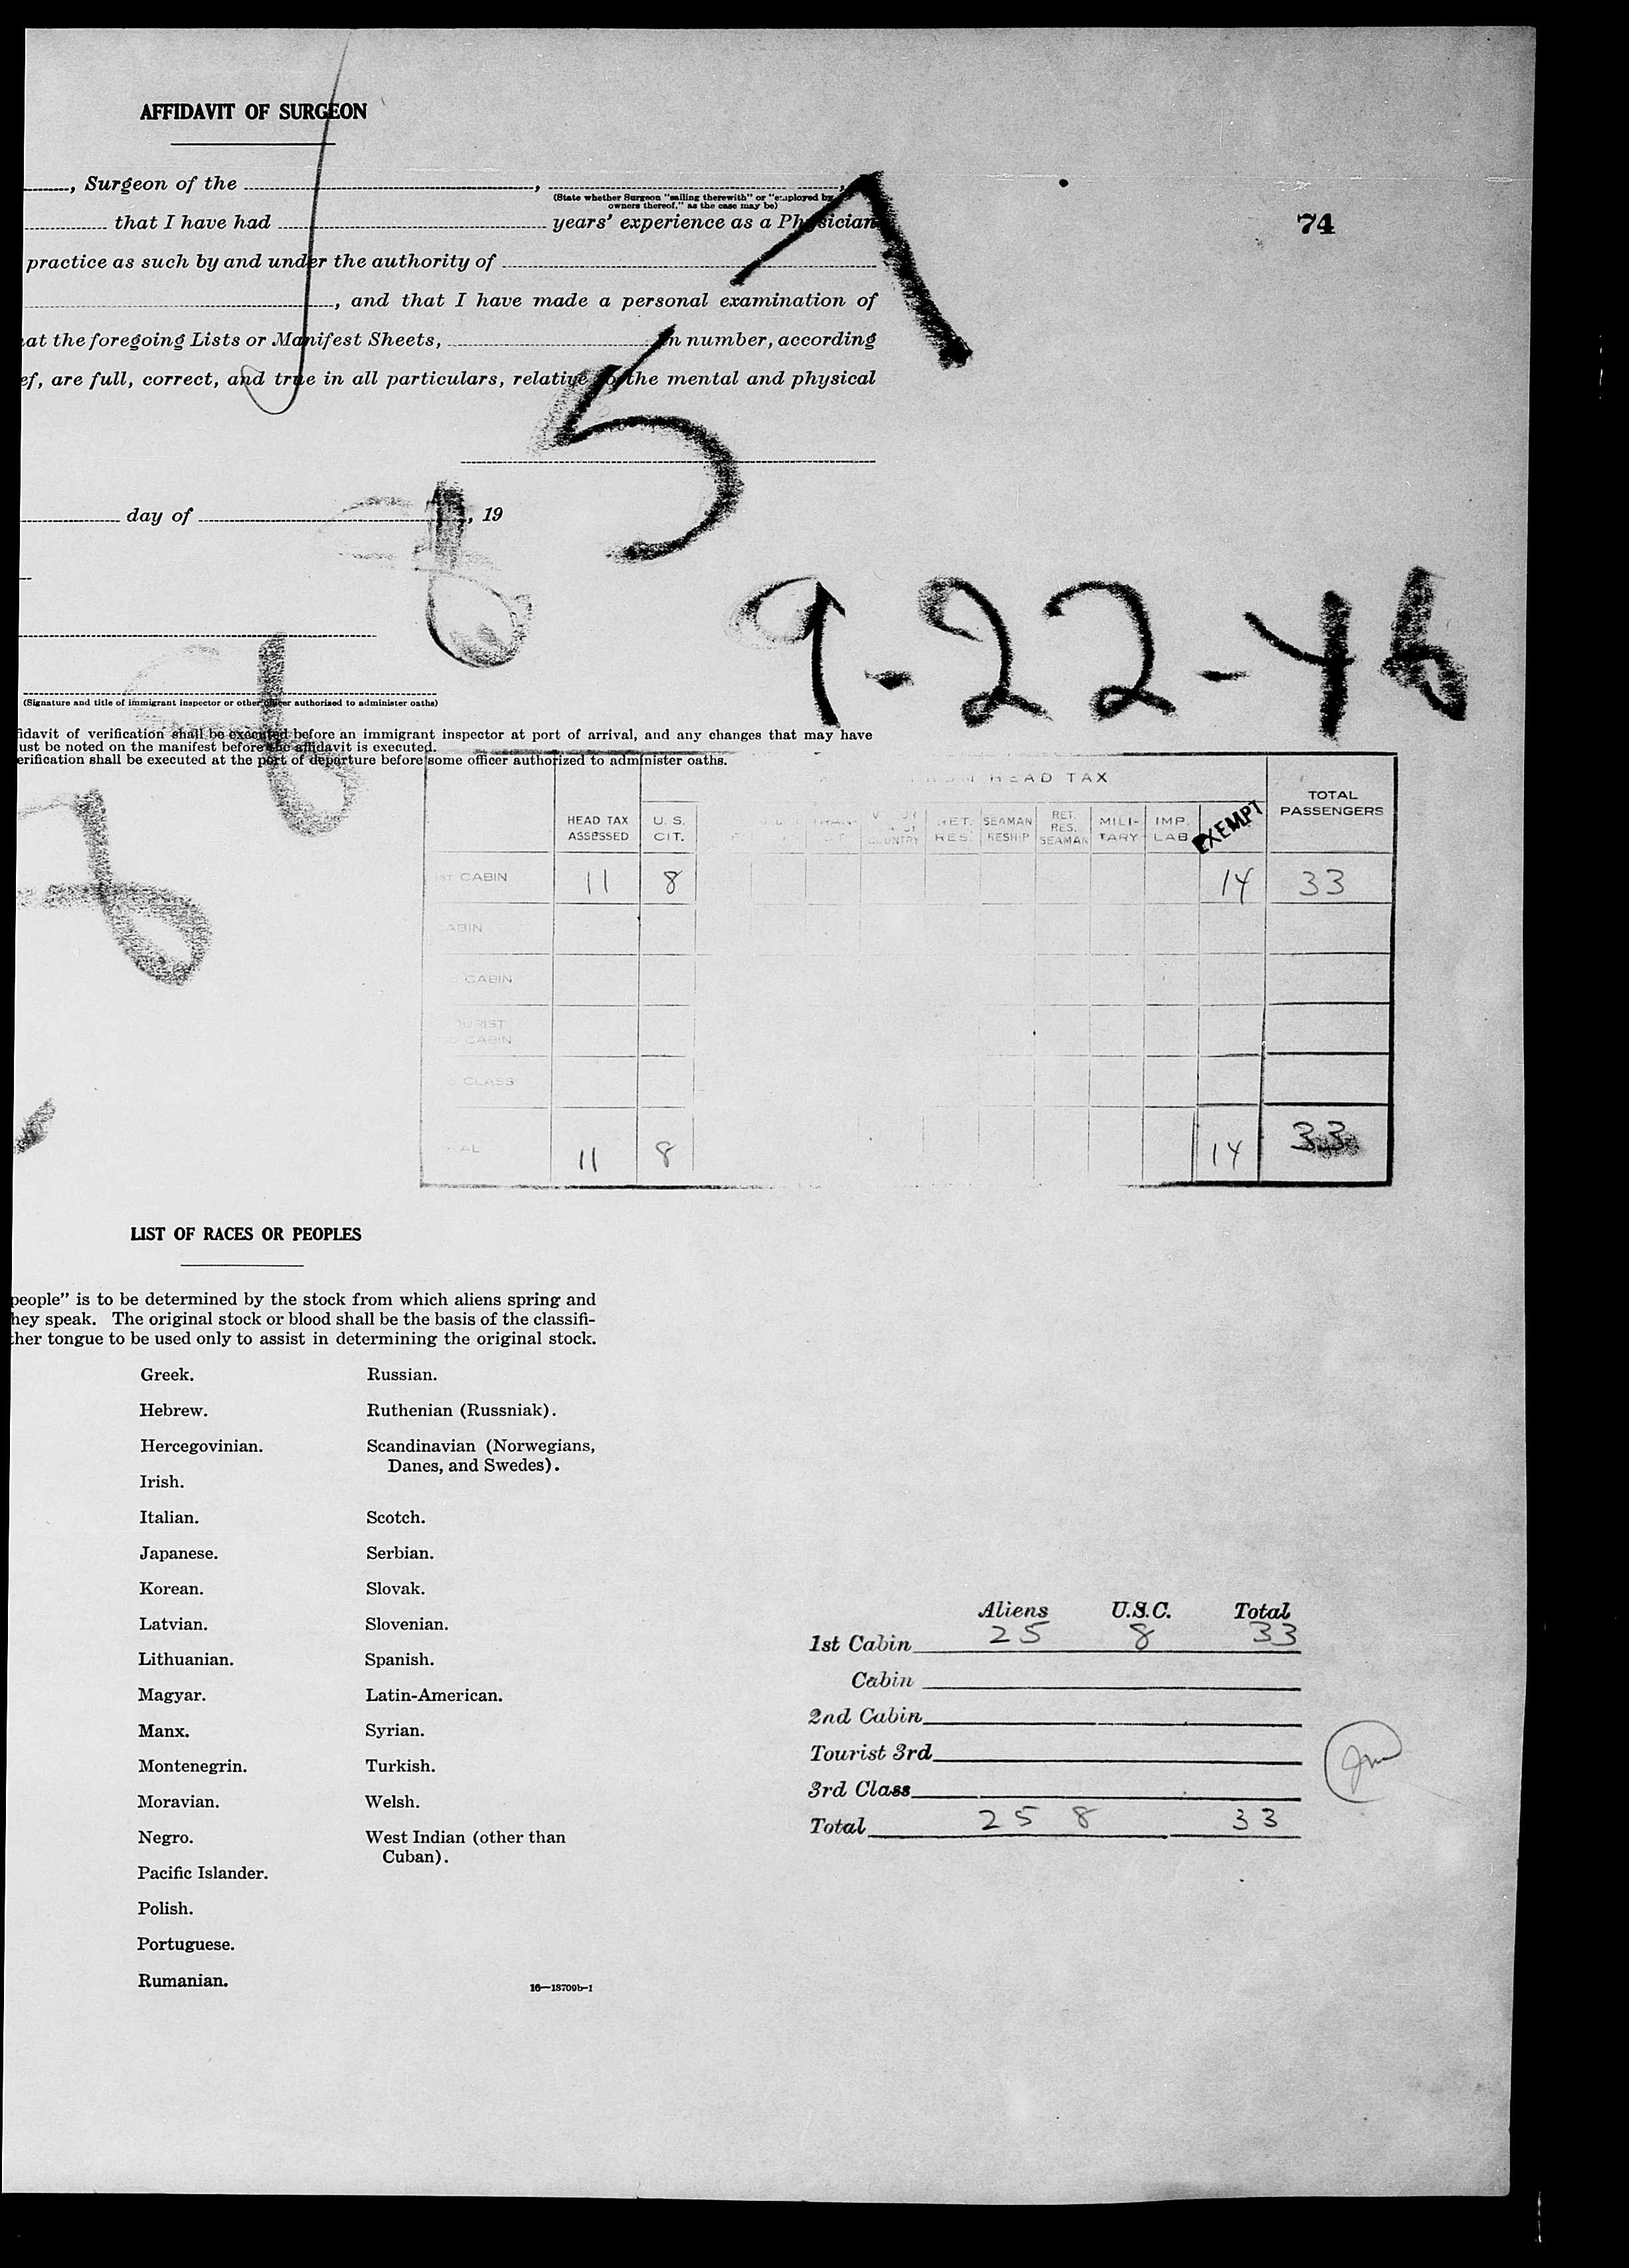 AFFIDAVIT OF SURGEON
, Surgeon of the , ,
(State whether Surgeon "sailing therewith" or "employed by
owners thereof," as the case may be)
74
that I have had years' experience as a Physician
practice as such by and under the authority of
, and that I have made a personal examination of
at the foregoing Lists or Manifest Sheets, in number, according
ef, are full, correct, and true in all particulars, relative to the mental and physical
day of , 19
9-22-46
(Signature and title of immigrant inspector or other officer authorized to administer oaths)
idavit of verification shall be executed before an immigrant inspector at port of arrival, and any changes that may have
ust be noted on the manifest before the affidavit is executed.
erification shall be executed at the port of departure before some officer authorized to administer oaths.
HEAD TAX
HEAD TAX ASSESSED U. S. CIT. COUNTRY RET. RES. SEAMAN RESHIP RET. RES. SEAMAN MILI-TARY IMP. LAB EXEMPT TOTAL PASSENGERS
1ST CABIN 11 8 14 33
CABIN
CABIN
TOURIST
CABIN
CLASS
AL 11 8 14 33
LIST OF RACES OR PEOPLES
people" is to be determined by the stock from which aliens spring and
hey speak. The original stock or blood shall be the basis of the classifi-
ther tongue to be used only to assist in determining the original stock.
Greek.
Hebrew.
Hercegovinian.
Irish.
Italian.
Japanese.
Korean.
Latvian.
Lithuanian.
Magyar.
Manx.
Montenegrin.
Moravian.
Negro.
Pacific Islander.
Polish.
Portuguese.
Rumanian.
Russian.
Ruthenian (Russniak).
Scandinavian (Norwegians,
Danes, and Swedes).
Scotch.
Serbian.
Slovak.
Slovenian.
Spanish.
Latin-American.
Syrian.
Turkish.
Welsh.
West Indian (other than
Cuban).
16—18709b-1
Aliens U.S.C. Total
1st Cabin 25 8 33
Cabin
2nd Cabin
Tourist 3rd
3rd Class
Total 25 8 33